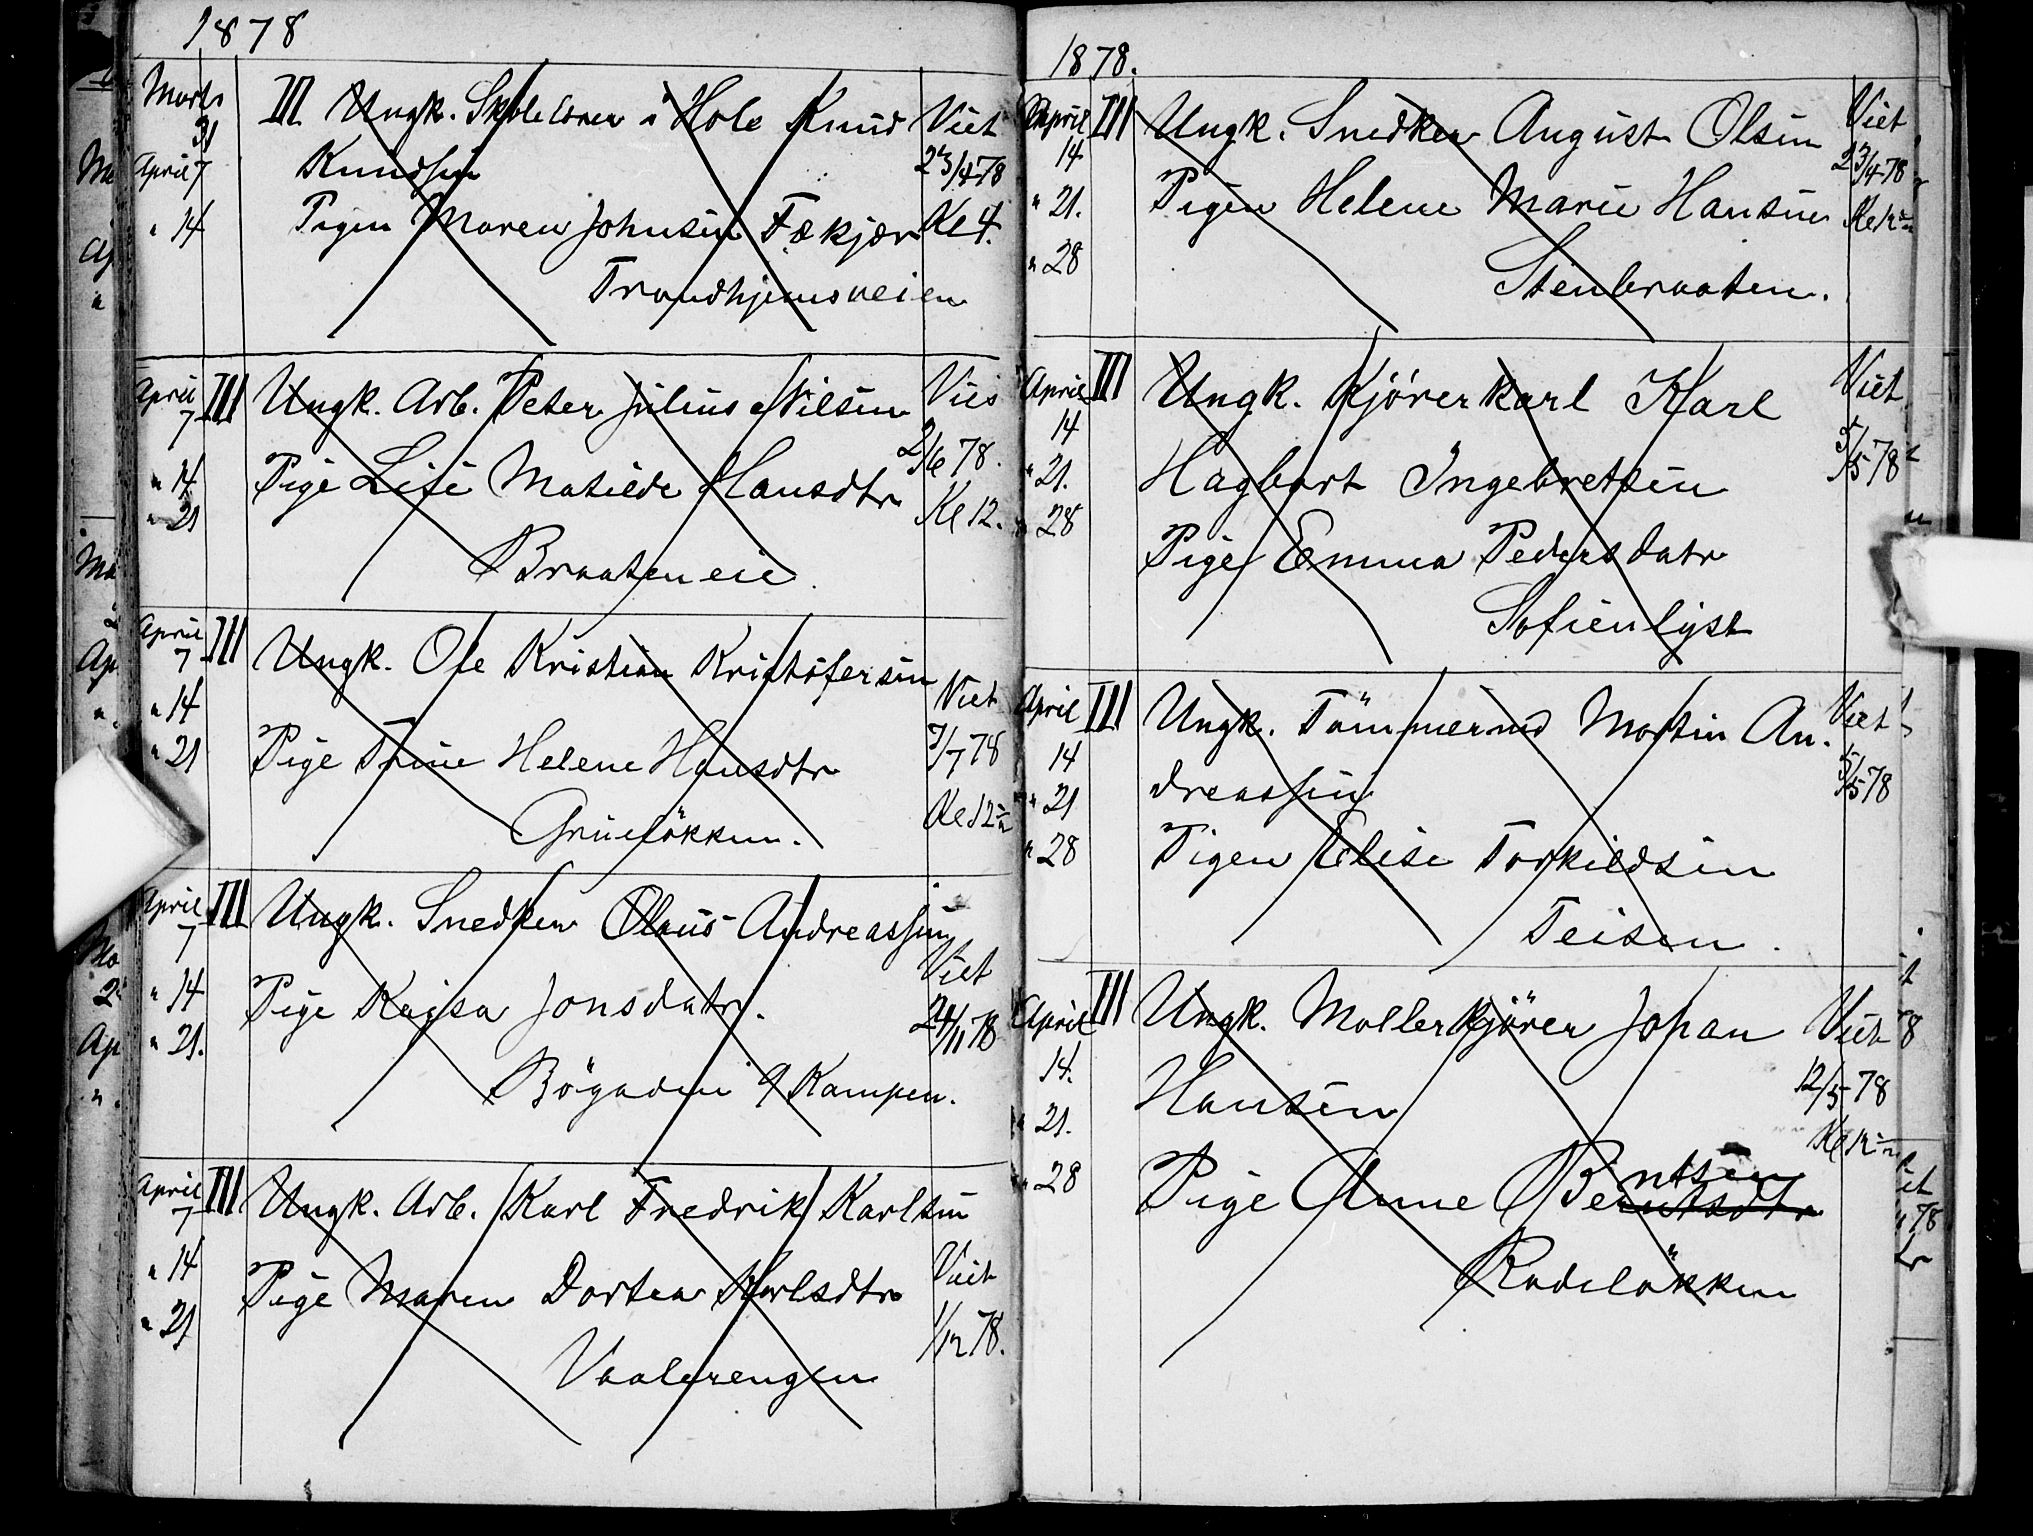 1878
Marts 31 III Ungk. Skolelærer i Hole Knud Viet
April 7 Knudsen 23/4 78
" 14 Pigen Maren Johnsen Fækjær Kl 4.
Trondhjemsveien
April 7 III Ungk. Arb. Peter Julius Nilsen Vies
" 14 Pige Lise Matilde Hansdtr 2/6 78.
" 21 Braaten eie. Kl 12.
April 7 III Ungk. Ole Kristian Kristofersen Viet
" 14 7/7 78
" 21 Pige Trine Helene Hansdtr
Grüneløkken. Kl 12
April 7 III Ungk. Snedker Olaus Andreassen Viet
" 14 Pige Kajsa Jonsdatr. 24/11 78
" 21. Bögaden 9 Kampen.
April 7 III Ungk. Arb. Karl Fredrik Karlsen
" 14 Pige Maren Dortea Karlsdtr Viet
" 21 1/12 78.
Vaalerengen
1878.
April 14 III Ungk. Snedker August Olsen Viet
" 21. Pigen Helene Marie Hansen 23/4 78
" 28 Stenbraaten.
April 14 III Ungk. Kjörerkarl Karl Viet
" 21. Hagbart Ingebretsen 5/5 78
" 28 Pige Emma Pedersdatr
Sofienlyst
April 14 III Ungk. Tömmermd Martin An- Viet
" 21 dreassen 5/5 78
" 28 Pigen Elise Torkildsen
Teisen.
April 14. III Ungk. Møllerkjörer Johan Viet
" 21. Hansen 12/5 78
ntsen
" 28 Pige Anne Berntsdtr
Rodeløkken